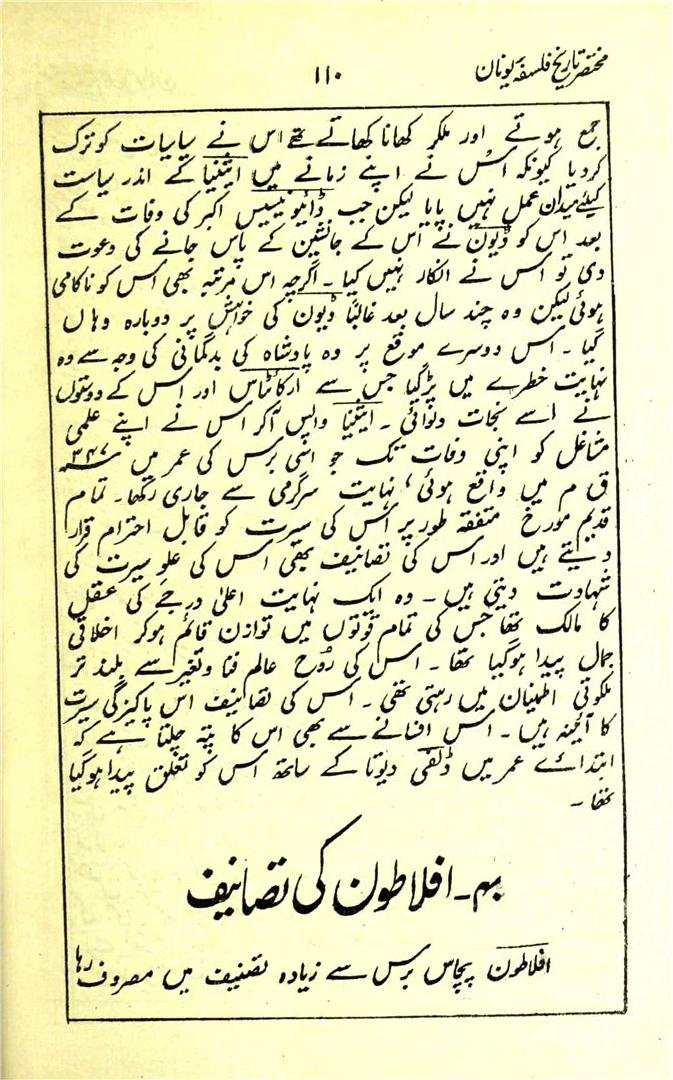 مختصر تاریخ فلسفۂ یونان
۱۱۰
جمع ہوتے اور ملکر کھانا کھاتے تھے اس نے سیاسیات کو ترک
کردیا کیونکہ اُس نے اپنے زمانے میں ایتھنیا کے اندر سیاست
کیلئے میدان عمل نہیں پایا لیکن جب ڈائیونیسیس اکبر کی وفات کے
بعد اس کو ڈیون نے اس کے جانشین کے پاس جانے کی دعوت
دی تو اس نے انکار نہیں کیا ۔ اگرچہ اس مرتبہ بھی اس کو ناکامی
ہوئی لیکن وہ چند سال بعد غالباً ڈیون کی خواہش پر دوبارہ وہاں
گیا ۔ اس دوسرے موقع پر وہ پادشاہ کی بدگمانی کی وجہ سے وہ
نہایت خطرے میں پڑگیا جس سے ارکائٹاس اور اس کے دوستوں
نے اسے نجات دلوائی ۔ ایتھنیا واپس آکر اس نے اپنے علمی
مشاغل کو اپنی وفات تک جو اسّی برس کی عمر میں ۳۴۷
ق م میں واقع ہوئی، نہایت سرگرمی سے جاری رکھا۔ تمام
قدیم مورخ متفقہ طور پر اس کی سیرت کو قابل احترام قرار
دیتے ہیں اور اس کی تصانیف بھی اس کی علو سیرت کی
شہادت دیتی ہیں ۔ وہ ایک نہایت اعلیٰ درجے کی عقل
کا مالک تھا جس کی تمام قوتوں میں توازن قائم ہوکر اخلاقی
جمال پیدا ہوگیا تھا ۔ اس کی رُوح عالم فنا و تغیر سے بلند تر
ملکوتی اطمینان میں رہتی تھی ۔ اس کی تصانیف اس پاکیزگی سیرت
کا آئینہ ہیں ۔ اس افسانے سے بھی اس کا پتہ چلتا ہے کہ
ابتدائے عمر میں ڈلفی دیوتا کے ساتھ اس کو تعلق پیدا ہوگیا
تھا ۔
۴۔ افلاطون کی تصانیف
افلاطون پچاس برس سے زیادہ تصنیف میں مصروف رہا